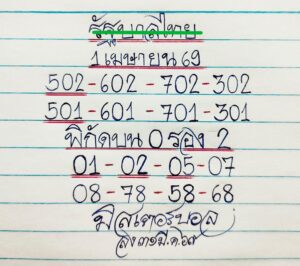 รัฐบาลไทย
1 เมษายน 69
502-602-702-302
501-601-701-301
พิกัดบน 0 รอง 2
01-02-05-07
08-78-58-68
มิสเตอร์บอล